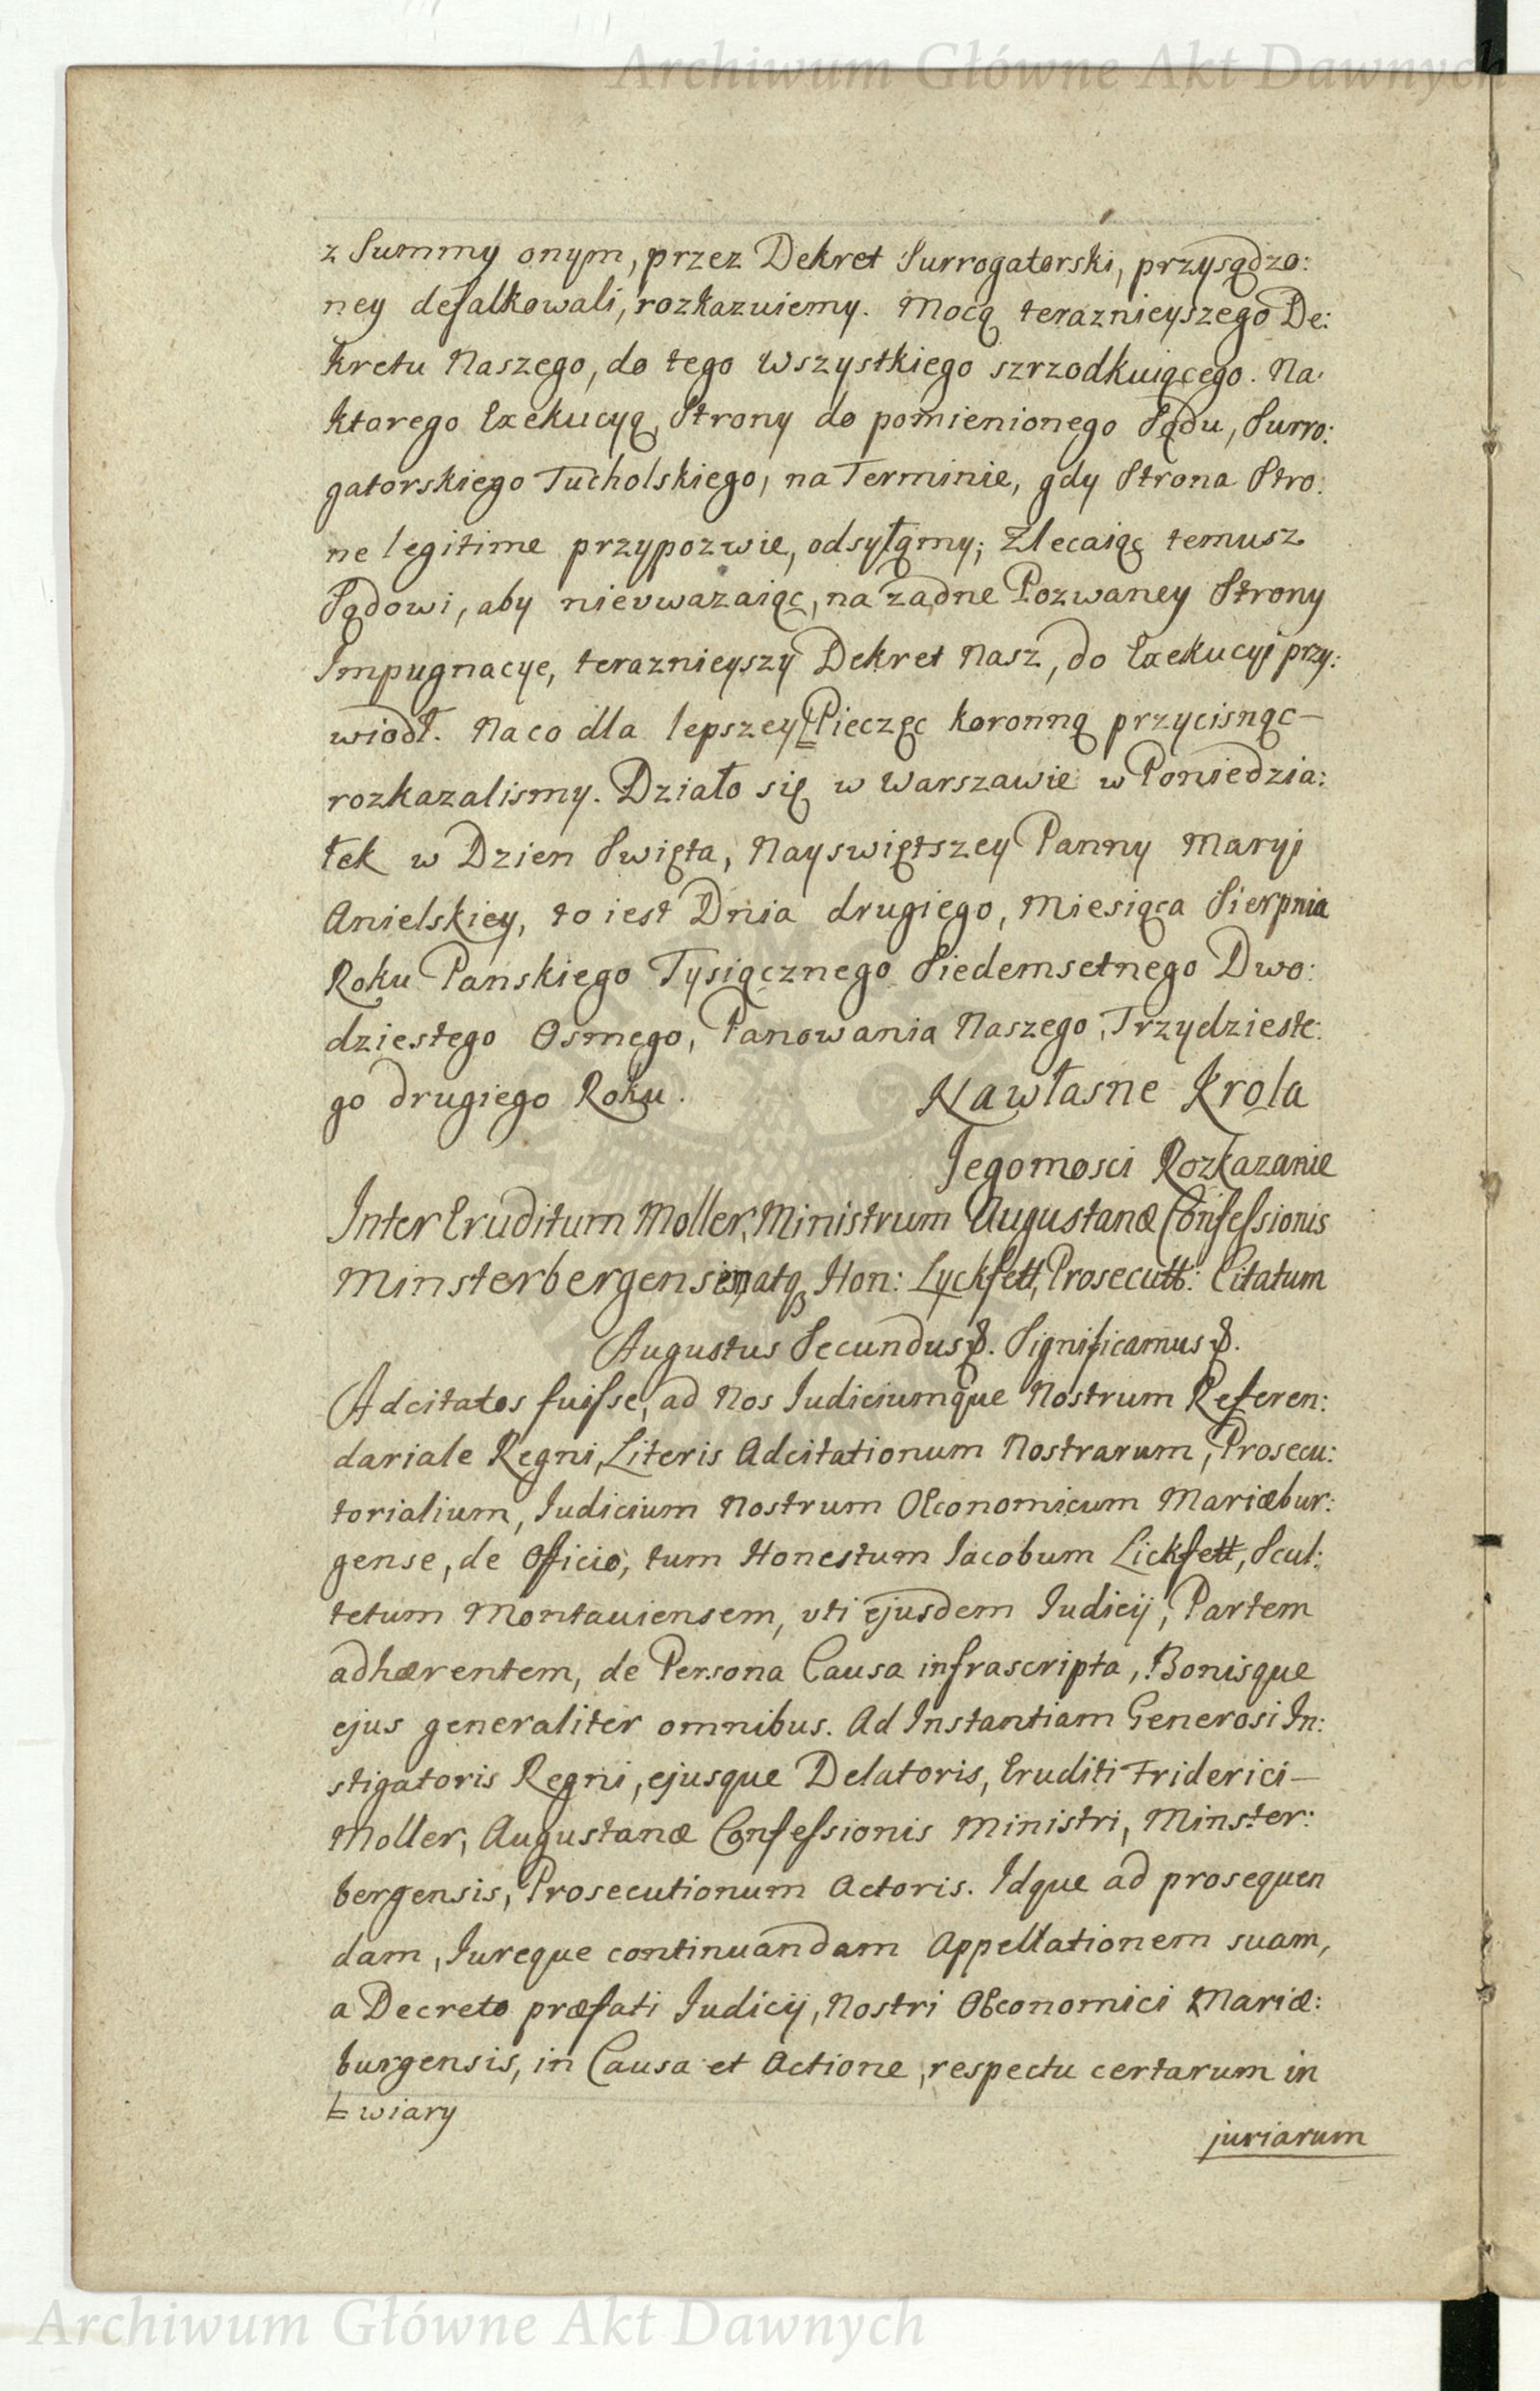 Archiwum Główne Akt Dawnych
z Summy onym, przez Dekret Surrogatorski, przysądzo:
ney defalkowali, rozkazuiemy. Mocą teraznieyszego De:
kretu Naszego, do tego wszystkiego szrzodkuiącego. Na
ktorego Exekucyą, Strony do pomienionego Sądu, Surro:
gatorskiego Tucholskiego, na Terminie, gdy Strona Stro:
ne legitime przypozwie, odsyłamy; Zlecaiąc temusz
Sądowi, aby nieuwazaiąc, na zadne Pozwaney Strony
Impugnacye, teraznieyszy Dekret Nasz, do Exekucyi przy:
wiodł. Na co dla lepszey Ⱶ Pieczęc koronną przycisnąc—
rozkazalismy. Działo się w Warszawie w Poniedzia:
łek w Dzien Swięta, Nayswiętszey Panny Maryi
Anielskiey, to iest Dnia drugiego, Miesiąca Sierpnia
Roku Panskiego Tysiącznego Siedemsetnego Dwo:
dziestego Osmego, Panowania Naszego, Trzydzieste:
go drugiego Roku. Na własne Krola
Jegomosci Rozkazanie
Inter Eruditum Moller, Ministrum Augustanæ Confessionis
Minsterbergensem, atq Hon: Lyckfett, Prosecutt: Citatum
Augustus Secundus &. Significamus &.
Adcitatos fuisse, ad Nos Judiciumque Nostrum Referen:
dariale Regni, Literis Adcitationum Nostrarum, Prosecu:
torialium, Judicium Nostrum Oeconomicum Mariæbur:
gense, de Officio, tum Honestum Iacobum Lickfett, Scul:
tetum Montauiensem, uti ejusdem Iudicij, Partem
adhærentem, de Persona Causa infrascripta, Bonisque
ejus generaliter omnibus. Ad Instantiam Generosi In:
stigatoris Regni, ejusque Delatoris, Eruditi Friderici—
Moller, Augustanæ Confessionis Ministri, Minster:
bergensis, Prosecutionum Actoris. Idque ad prosequen
dam, Jureque continuandam Appellationem suam,
a Decreto præfati Judicij, Nostri Oeconomici Mariæ:
burgensis, in Causa et Actione, respectu certarum in
Ⱶ wiary
juriarum
Archiwum Główne Akt Dawnych